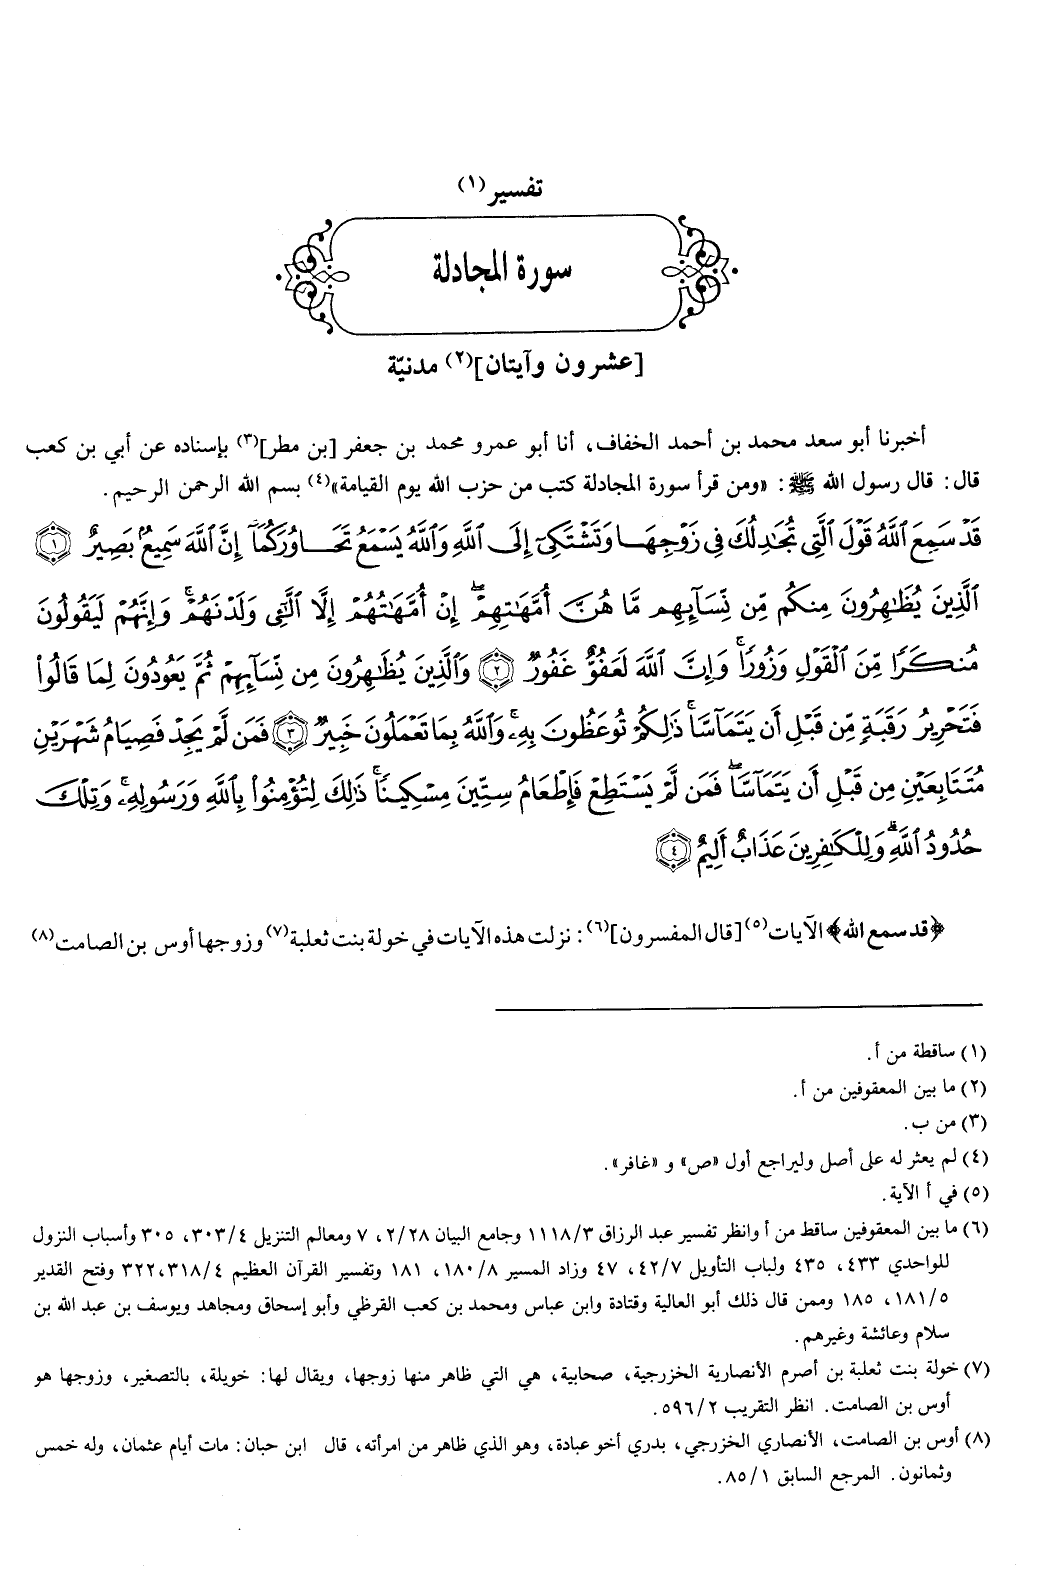 تفسير(١)
سورة المجادلة
[عشرون وآيتان](٢) مدنيّة
أخبرنا أبو سعد محمد بن أحمد الخفاف، أنا أبو عمرو محمد بن جعفر [بن مطر](٣) بإسناده عن أبي بن كعب
قال: قال رسول الله ﷺ: «ومن قرأ سورة المجادلة كتب من حزب الله يوم القيامة»(٤) بسم الله الرحمن الرحيم.
قَدْ سَمِعَ ٱللَّهُ قَوْلَ ٱلَّتِى تُجَٰدِلُكَ فِى زَوْجِهَا وَتَشْتَكِىٓ إِلَى ٱللَّهِ وَٱللَّهُ يَسْمَعُ تَحَاوُرَكُمَآ إِنَّ ٱللَّهَ سَمِيعٌۢ بَصِيرٌ ١
ٱلَّذِينَ يُظَٰهِرُونَ مِنكُم مِّن نِّسَآئِهِم مَّا هُنَّ أُمَّهَٰتِهِمْ ۖ إِنْ أُمَّهَٰتُهُمْ إِلَّا ٱلَّٰٓـِٔى وَلَدْنَهُمْ ۚ وَإِنَّهُمْ لَيَقُولُونَ
مُنكَرًا مِّنَ ٱلْقَوْلِ وَزُورًا ۚ وَإِنَّ ٱللَّهَ لَعَفُوٌّ غَفُورٌ ٢ وَٱلَّذِينَ يُظَٰهِرُونَ مِن نِّسَآئِهِمْ ثُمَّ يَعُودُونَ لِمَا قَالُوا۟
فَتَحْرِيرُ رَقَبَةٍ مِّن قَبْلِ أَن يَتَمَآسَّا ۚ ذَٰلِكُمْ تُوعَظُونَ بِهِۦ ۚ وَٱللَّهُ بِمَا تَعْمَلُونَ خَبِيرٌ ٣ فَمَن لَّمْ يَجِدْ فَصِيَامُ شَهْرَيْنِ
مُتَتَابِعَيْنِ مِن قَبْلِ أَن يَتَمَآسَّا ۖ فَمَن لَّمْ يَسْتَطِعْ فَإِطْعَامُ سِتِّينَ مِسْكِينًا ۚ ذَٰلِكَ لِتُؤْمِنُوا۟ بِٱللَّهِ وَرَسُولِهِۦ ۚ وَتِلْكَ
حُدُودُ ٱللَّهِ ۗ وَلِلْكَٰفِرِينَ عَذَابٌ أَلِيمٌ ٤
﴿قد سمع الله﴾ الآيات(٥) [قال المفسرون](٦): نزلت هذه الآيات في خولة بنت ثعلبة(٧) وزوجها أوس بن الصامت(٨)
(١) ساقطة من أ.
(٢) ما بين المعقوفين من أ.
(٣) من ب.
(٤) لم يعثر له على أصل وليراجع أول «ص» و «غافر».
(٥) في أ الآية.
(٦) ما بين المعقوفين ساقط من أ وانظر تفسير عبد الرزاق ١١١٨/٣ وجامع البيان ٢/٢٨، ٧ ومعالم التنزيل ٣٠٣/٤، ٣٠٥ وأسباب النزول
للواحدي ٤٣٣، ٤٣٥ ولباب التأويل ٤٢/٧، ٤٧ وزاد المسير ١٨٠/٨، ١٨١ وتفسير القرآن العظيم ٣١٨/٤، ٣٢٢ وفتح القدير
١٨١/٥، ١٨٥ وممن قال ذلك أبو العالية وقتادة وابن عباس ومحمد بن كعب القرظي وأبو إسحاق ومجاهد ويوسف بن عبد الله بن
سلام وعائشة وغيرهم.
(٧) خولة بنت ثعلبة بن أصرم الأنصارية الخزرجية، صحابية، هي التي ظاهر منها زوجها، ويقال لها: خويلة، بالتصغير، وزوجها هو
أوس بن الصامت. انظر التقريب ٥٩٦/٢.
(٨) أوس بن الصامت، الأنصاري الخزرجي، بدري أخو عبادة، وهو الذي ظاهر من امرأته، قال ابن حبان: مات أيام عثمان، وله خمس
وثمانون. المرجع السابق ٨٥/١.